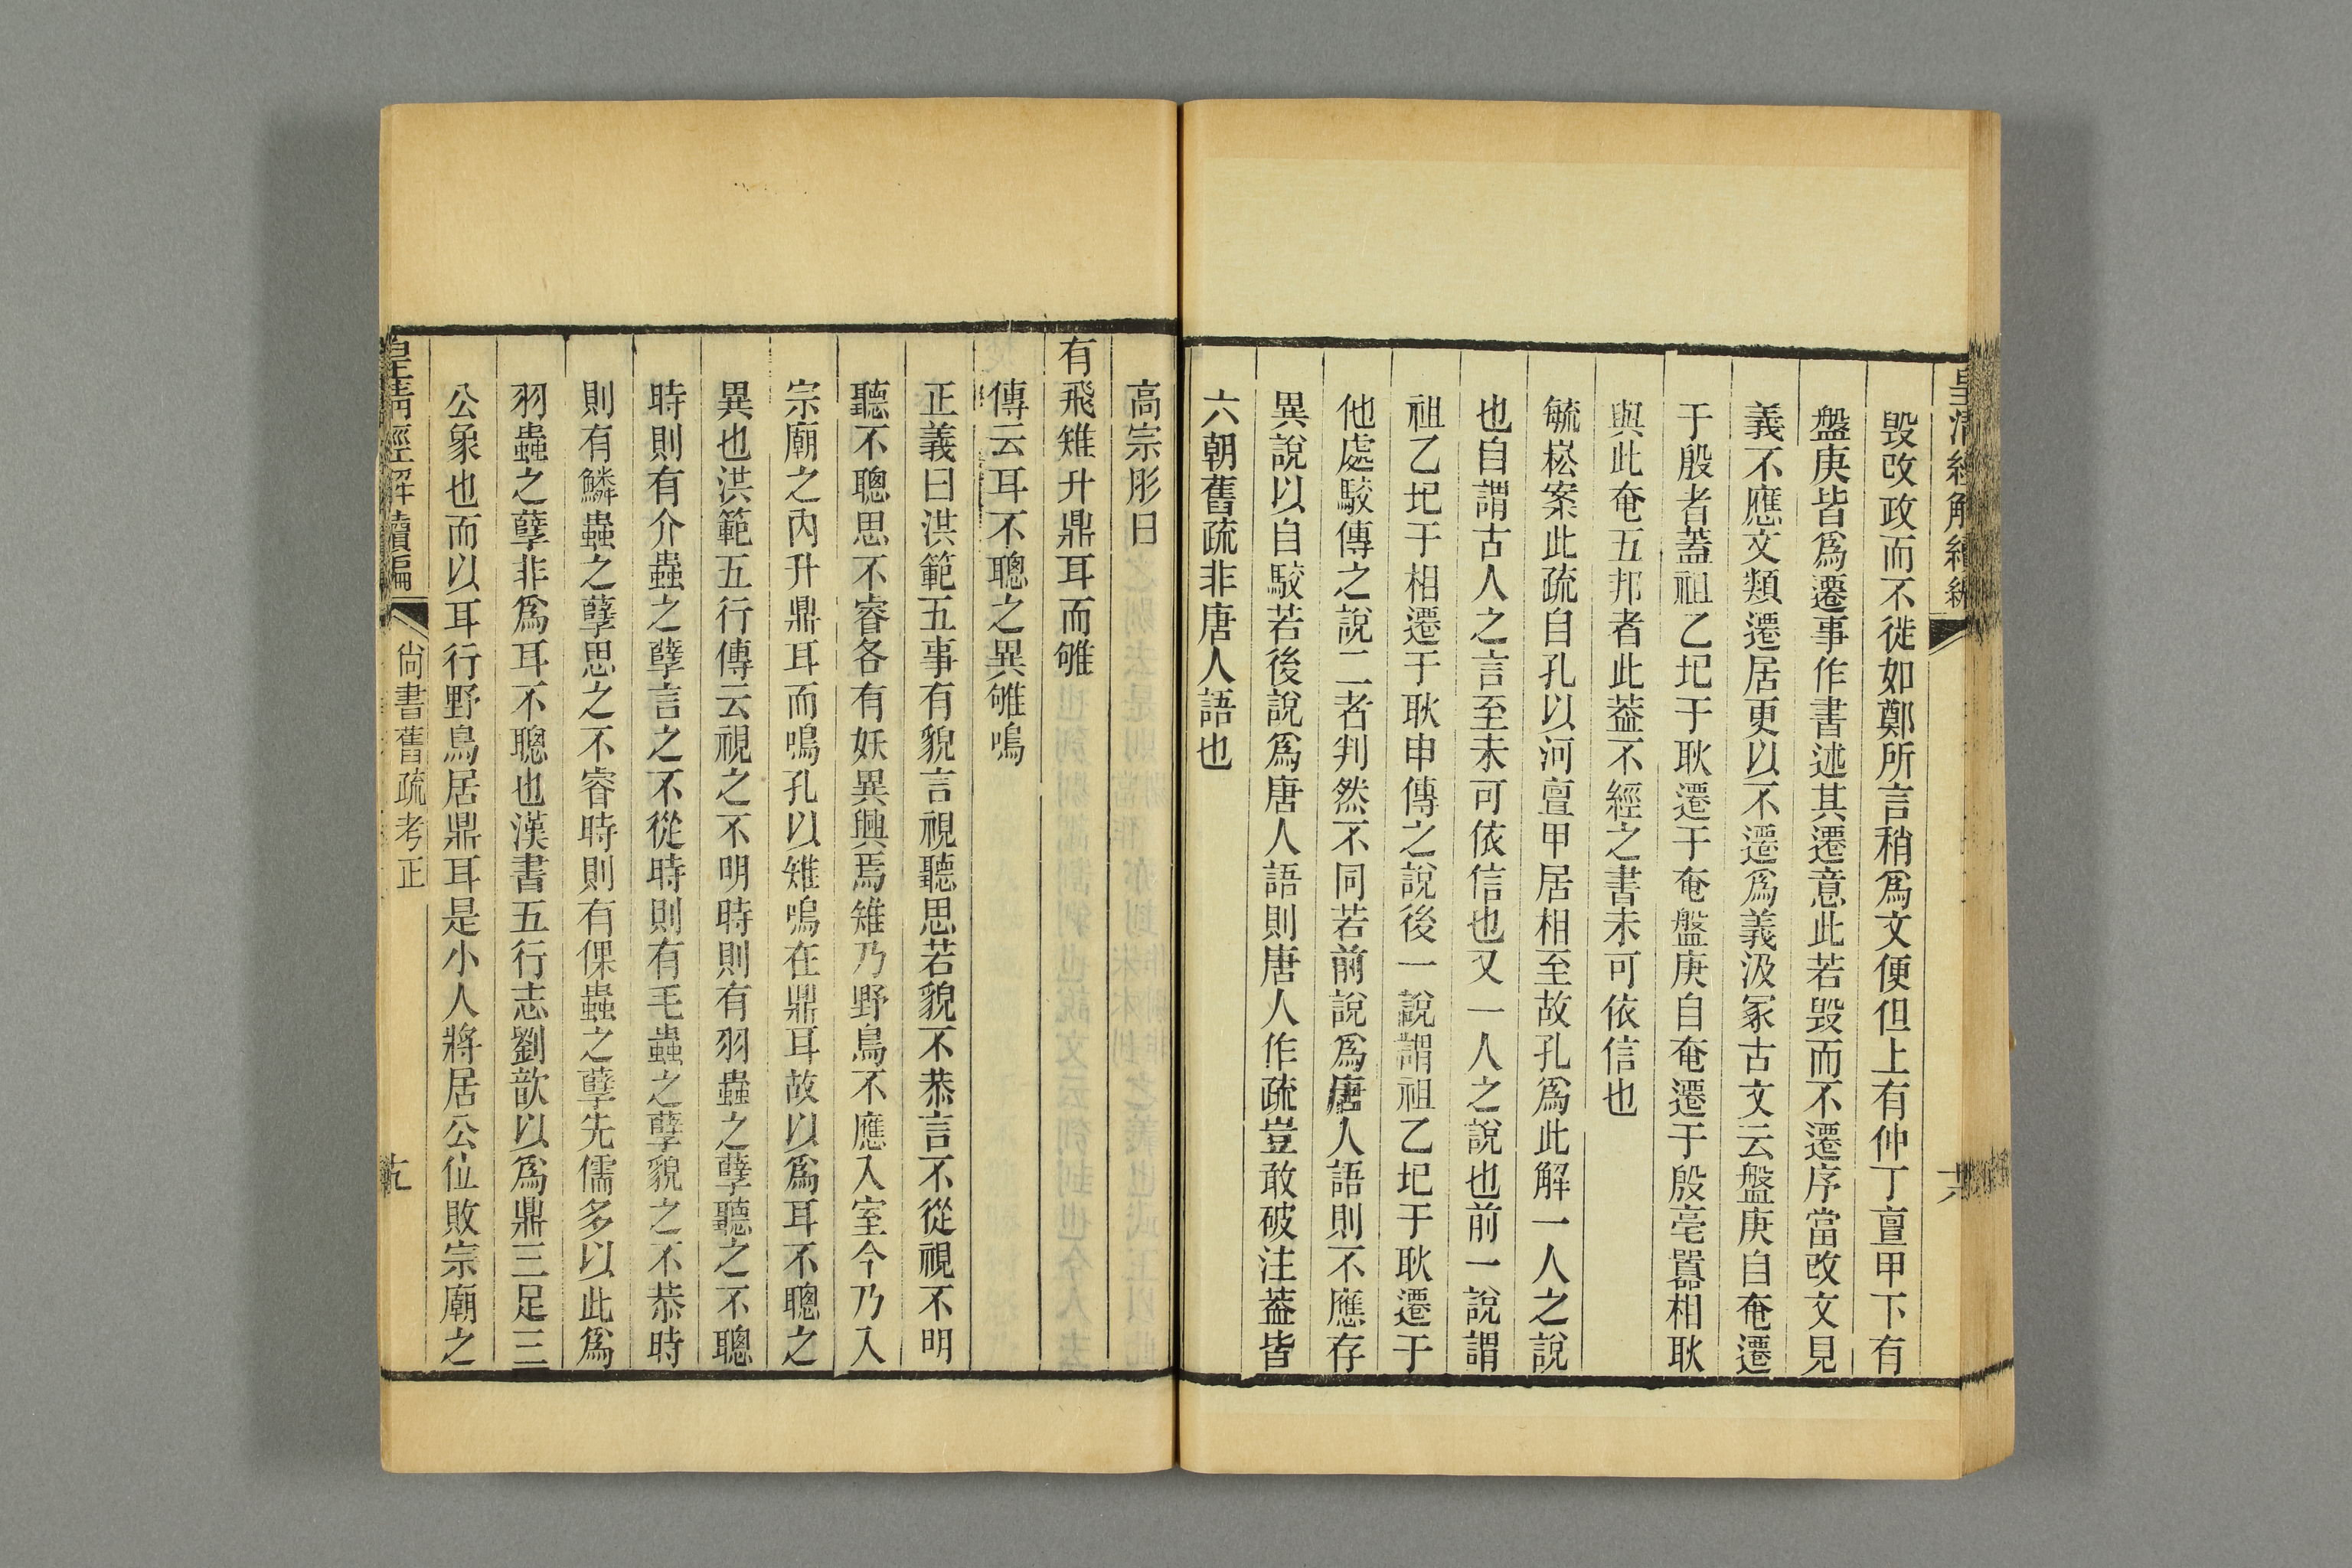 皇清經解續編
毀改政而不徙如鄭所言稍爲文便但上有仲丁亶甲下有
盤庚皆爲遷事作書述其遷意此若毀而不遷序當改文見
義不應文類遷居更以不遷爲義汲冢古文云盤庚自奄遷
于殷者蓋祖乙圯于耿遷于奄盤庚自奄遷于殷亳囂相耿
與此奄五邦者此葢不經之書未可依信也
毓崧案此疏自孔以河亶甲居相至故孔爲此解一人之說
也自謂古人之言至未可依信也又一人之說也前一說謂
祖乙圯于相遷于耿申傳之說後一說謂祖乙圯于耿遷于
他處駮傳之說二者判然不同若前說爲唐人語則不應存
異說以自駮若後說爲唐人語則唐人作疏豈敢破注葢皆
六朝舊疏非唐人語也
高宗肜日
有飛雉升鼎耳而雊
傳云耳不聰之異雊鳴
正義曰洪範五事有貌言視聽思若貌不恭言不從視不明
聽不聰思不睿各有妖異興焉雉乃野鳥不應入室今乃入
宗廟之內升鼎耳而鳴孔以雉鳴在鼎耳故以爲耳不聰之
異也洪範五行傳云視之不明時則有羽蟲之孽聽之不聰
時則有介蟲之孽言之不從時則有毛蟲之孽貌之不恭時
則有鱗蟲之孽思之不睿時則有倮蟲之孽先儒多以此爲
羽蟲之孽非爲耳不聰也漢書五行志劉歆以爲鼎三足三
公象也而以耳行野鳥居鼎耳是小人將居公位敗宗廟之
皇清經解續編
尙書舊疏考正